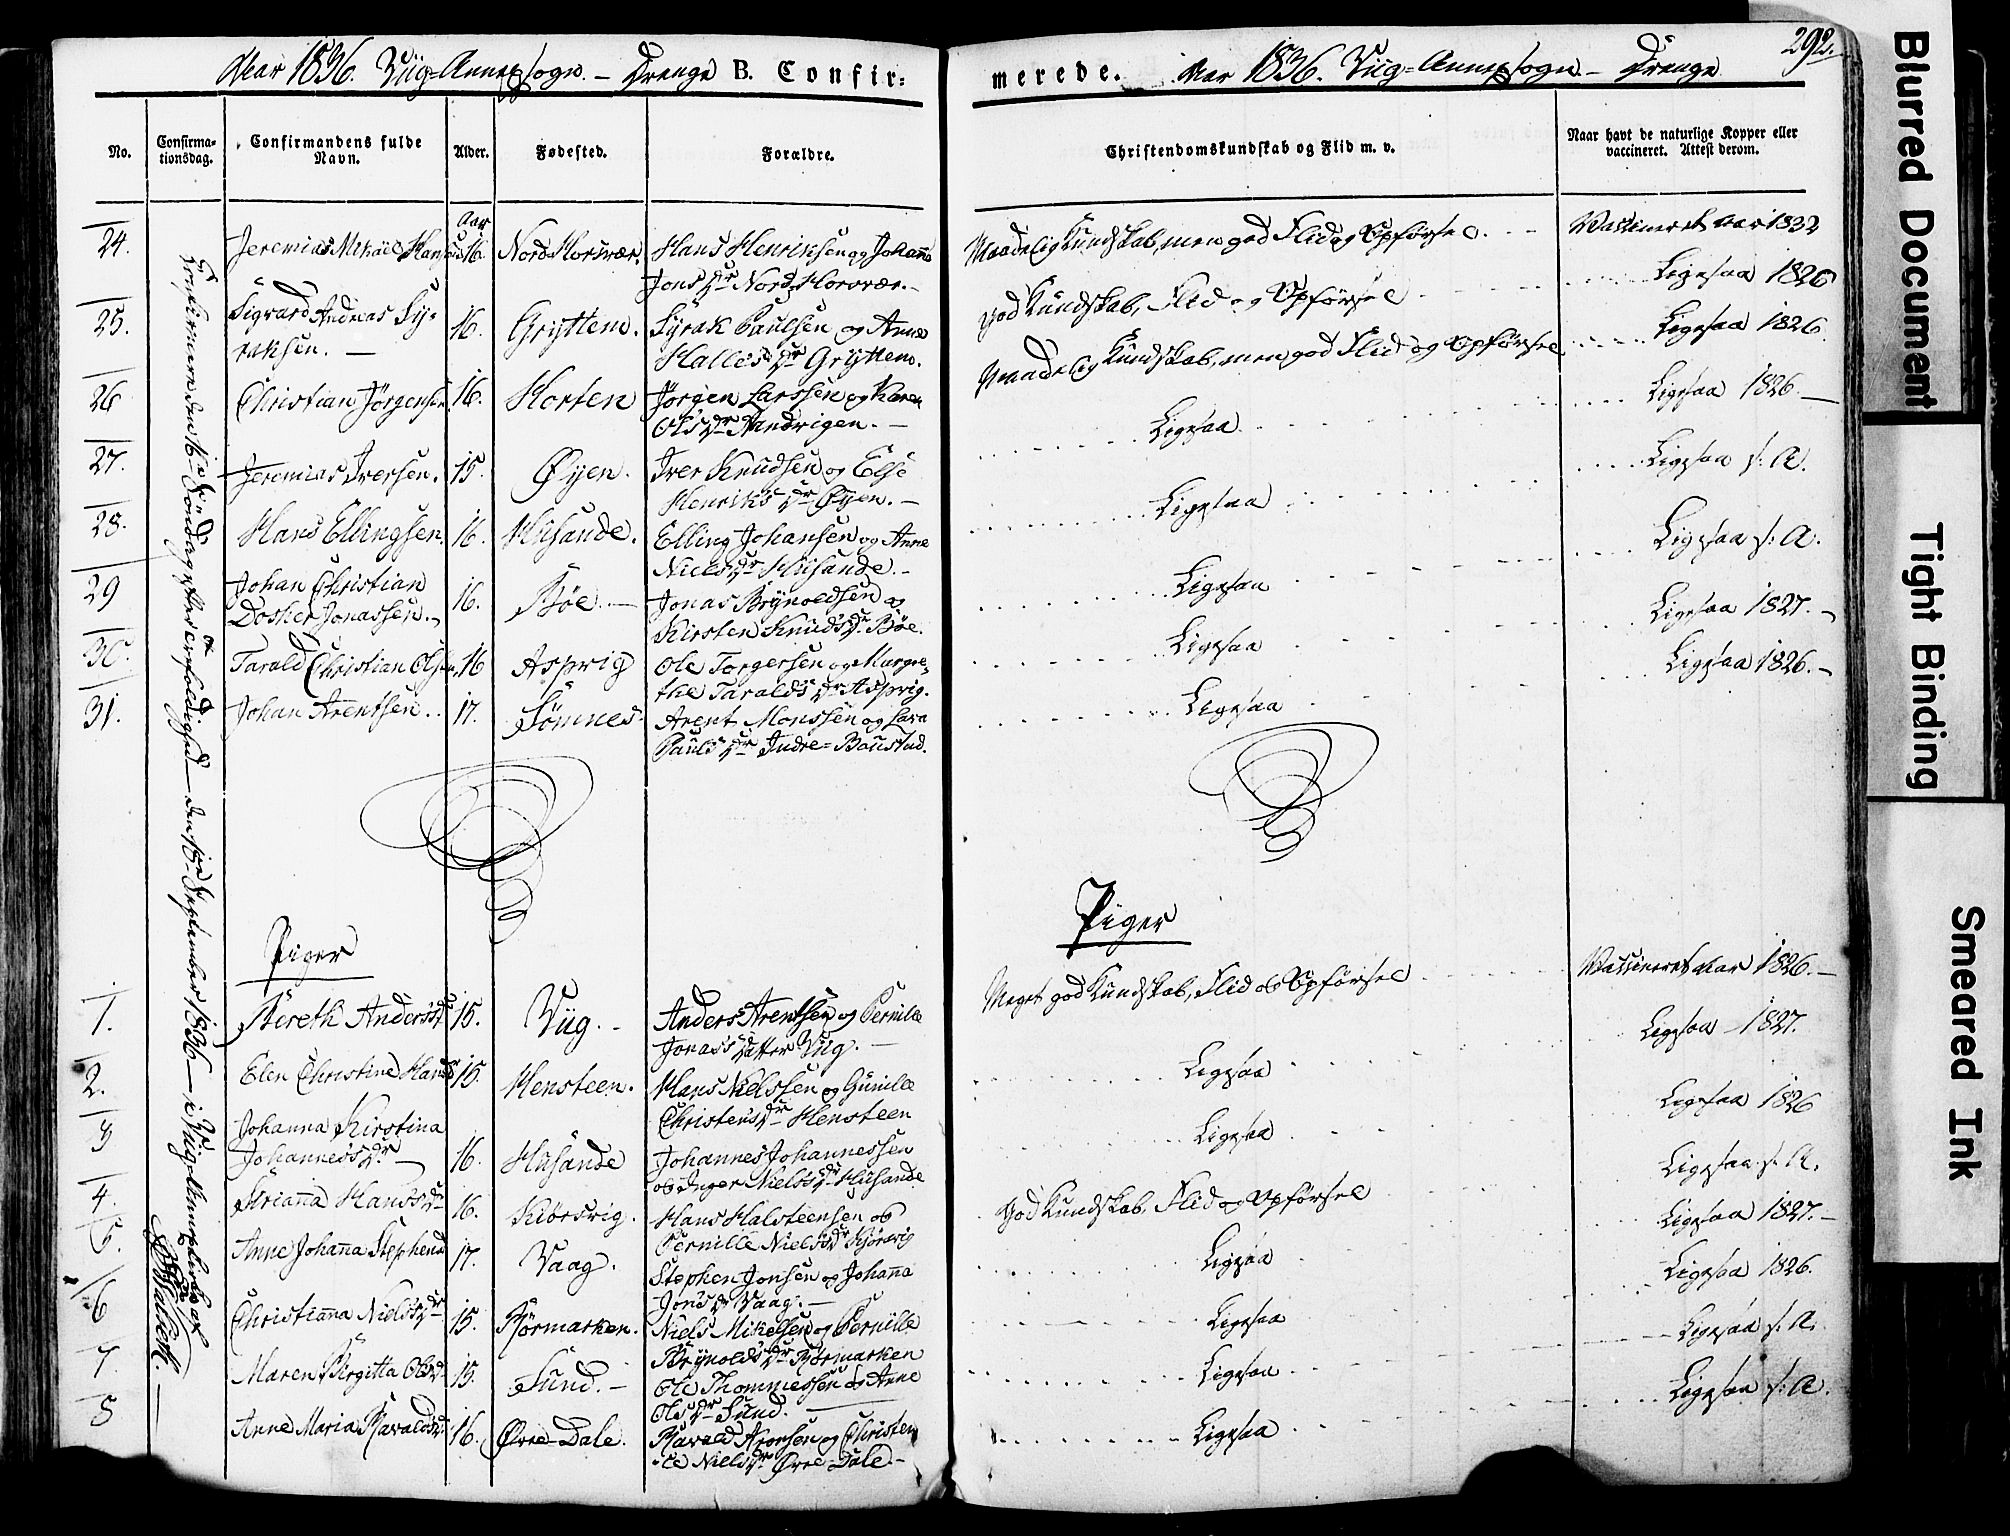 Aar 1836. Viig-Annexsogn. – Drenge B. Confir:
merede. Aar 1836. Viig-Annexsogn – Drenge
292.
No.
Confirma-
tionsdag.
Confirmandens fulde
Navn.
Alder.
Fødested.
Forældre.
Christendomskundskab og Flid m. v.
Naar havt de naturlige Kopper eller
vaccineret. Attest derom.
Aar
24. Jeremias Mikael Hans 16. Nord Horsvær. Hans Henriksen og Johana
Jons Dr Nord Horsvær. –
Maadelig Kundskab, men god Flid og Opførsel. Vassineret Aar 1832
25. Sigvard Andreas Sy-
raksen. – 16. Gryttem. Syrak Paulsen og Anne
Halles Dr Gryttem.
god Kundskab, Flid og Opførsel Ligesaa 1826
26 Christian Jørgensen 16. Horten Jørgen Larssen og Karen
Ols Dr Handrigen. –
Maadelig Kundskab, men god Flid og Opførsel Ligesaa 1826.
27. Jeremias Iversen. 15. Øyen. Iver Knudsen og Else
Henriks Dr Øyen. –
Ligesaa Ligesaa 1826. –
28. Hans Ellingsen. 16. Husande. Elling Johansen og Anne
Niels Dr Husande. –
Ligesaa Ligesaa s: A.
29 Johan Christian
Dosker Jonassen. – 16. Bøe. – Jonas Brynoldsen og
Kirsten Knuds Dr Bøe.
Ligesaa Ligesaa s: A.
30. Tarald Christian Olsen. 16 Asprig Ole Torgersen og Margre-
the Taralds Dr Asprig.
Ligesaa Ligesaa 1827. –
31. Johan Arentsen. 17. Sømnes. Arent Monssen og Lava
Pauls Dr Indre-Boustad.
Ligesaa Ligesaa 1826. –
Confirmerede den 16de Søndag efter Trefoldighed – den 18de September 1836 – i Viig Annexkirke af
Piger
Piger
1. Bereth Anders Dr 15. Viig. – Anders Arentsen og Pernille
Jonas Datter Viig. –
Meget god Kundskab, Flid og Opførsel Vassineret Aar 1826. –
2. Elen Christine Hans 15. Hensteen. Hans Nielssen og Gunille
Christens Dr Hensteen
Ligesaa Ligesaa – 1827.
3 Johanna Kirstina
Johanness Dr – 16. Husande Johannes Johannessen
og Inger Niels Dr Husande
Ligesaa Ligesaa 1826
4. Hanss Dr 16. Kiørsvig. Hans Halsteensen og
Pernille Niels Dr Kjørsvig
god Kundskab, Flid og Opførsel Ligesaa s: A.
5. Anne Johana Stephens 17. Vaag. Stephen Jonsen og Johana
Jons Dr Vaag. –
Ligesaa Ligesaa 1827. –
6 Christiana Niels Dr 15. Rørmarken. Niels Mikelsen og Pernille
Brynolds Dr Rørmarken
Ligesaa Ligesaa 1826.
7 Maren Birgitta Ols Dr 15. Sund. – Ole Thommessen og Anne
Ols Dr Sund. –
Ligesaa Ligesaa s: A.
8 Anne Maria Ravalds Dr 16. Øvre-Dale. Ravald Aronsen og Christen
Niels Dr Øvre-Dale. –
Ligesaa Ligesaa s: A.
Blurred Document
Tight Binding
Smeared Ink